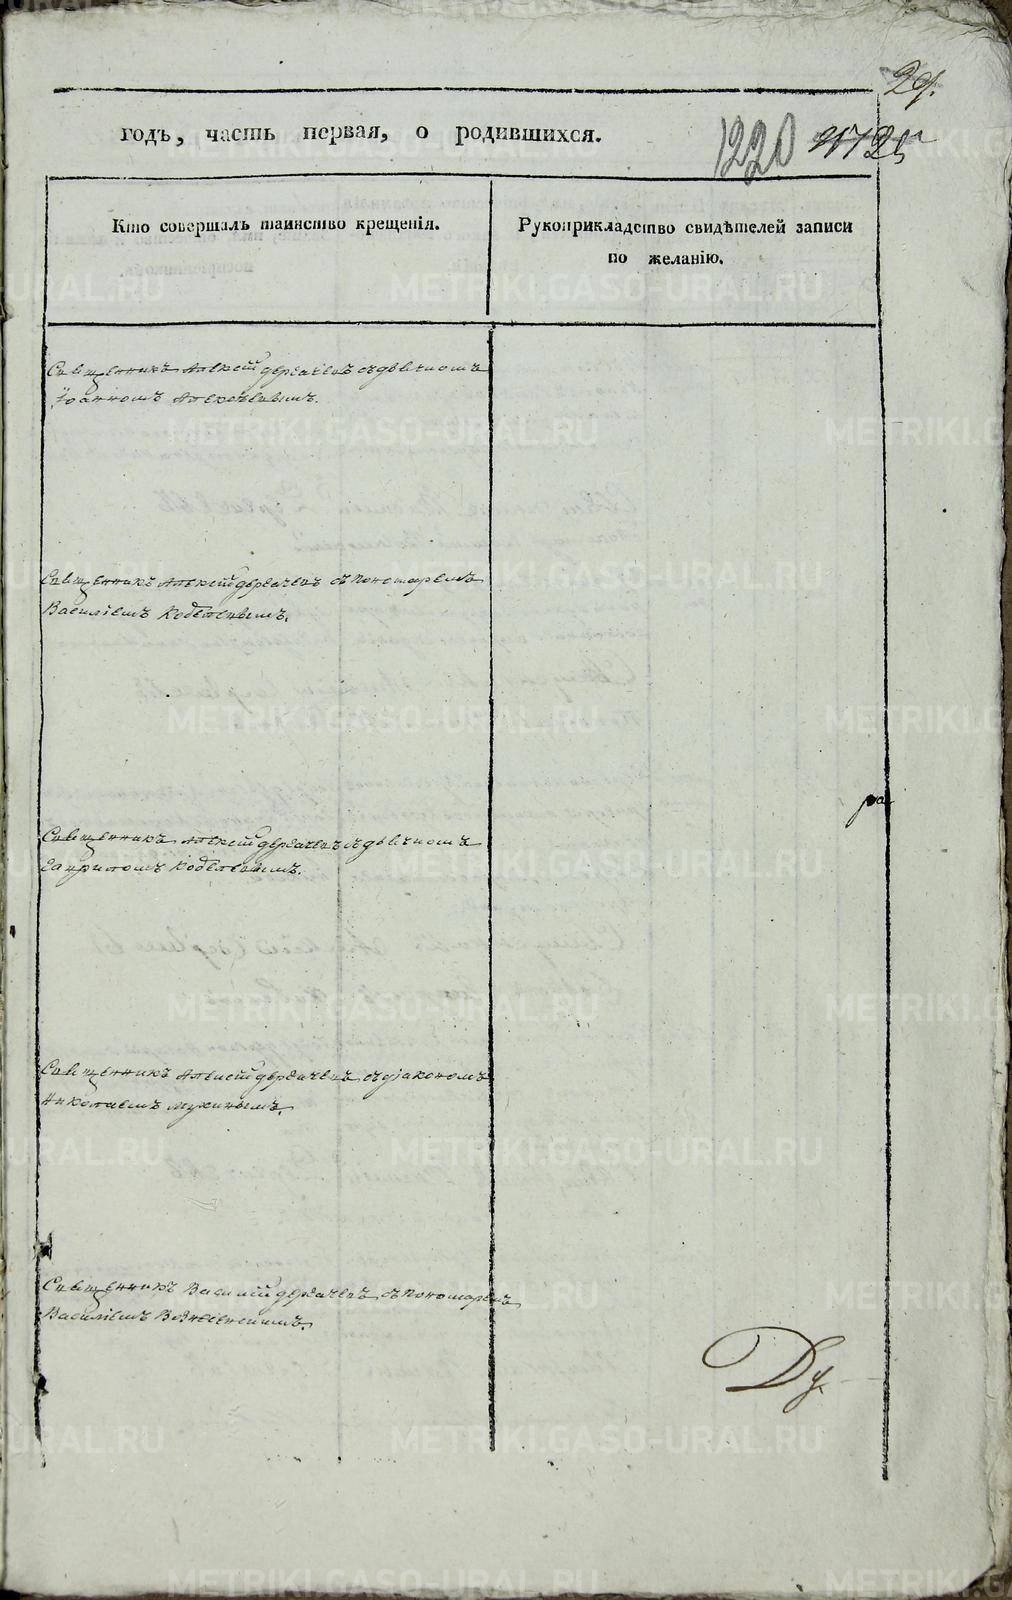 29.
годъ, часть первая, о родившихся.
1220
Кто совершалъ таинство крещенія.
Рукоприкладство свидѣтелей записи
по желанію.
Священникъ Алексій Дерябинъ съ дьячкомъ
Іоанномъ
Священникъ Алексій Дерябинъ съ пономаремъ
Василіемъ
Священникъ Алексій Дерябинъ съ дьячкомъ
Гавриломъ
Священникъ Алексій Дерябинъ съ діакономъ
Николаемъ Мухинымъ.
Священникъ Василій Дерябинъ съ пономаремъ
Василіемъ
METRIKI.GASO-URAL.RU